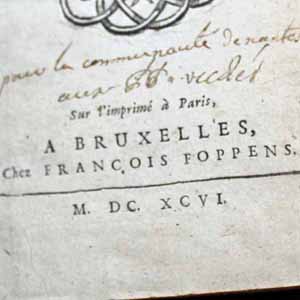 pour la communauté de nantes
aux
Sur l'imprimé à Paris,
A BRUXELLES,
Chez FRANÇOIS FOPPENS.
M. DC. XCVI.